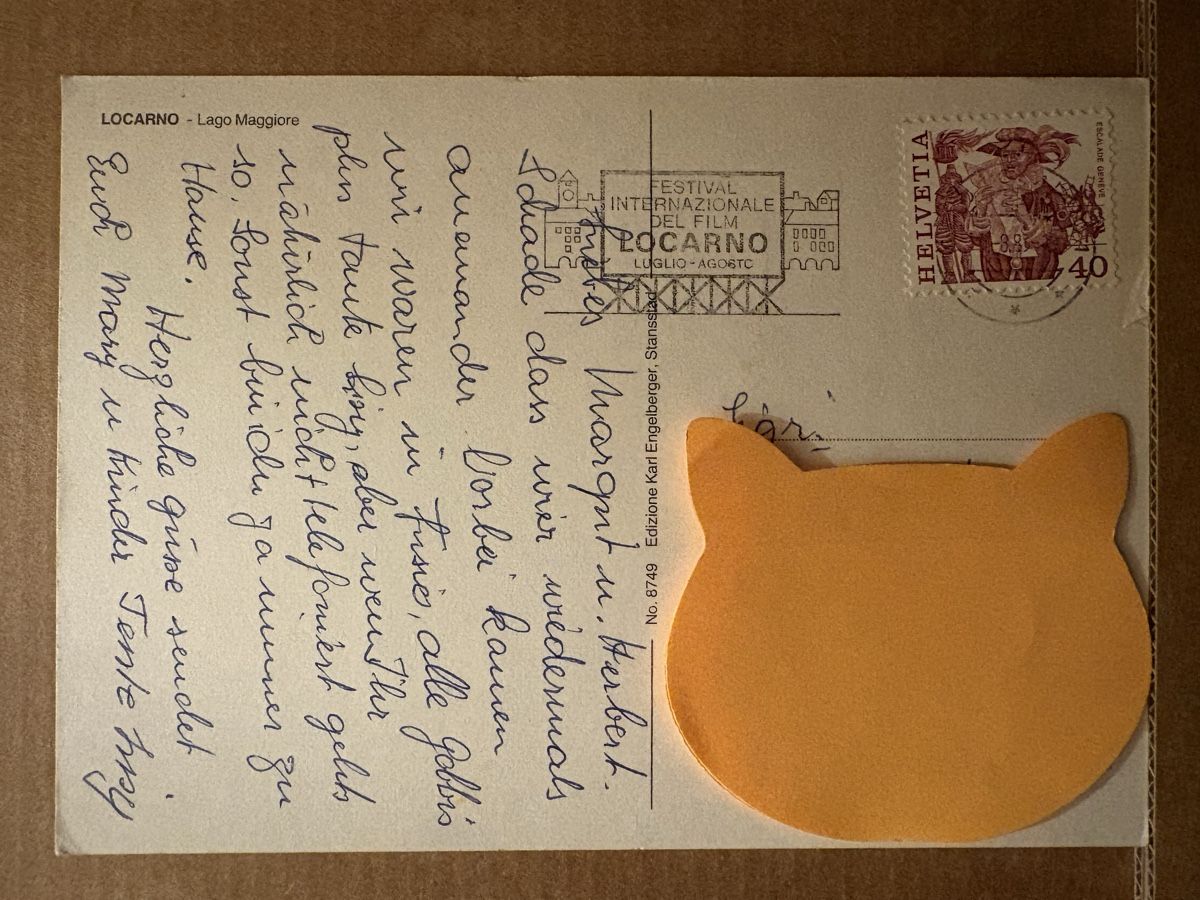 LOCARNO - Lago Maggiore
FESTIVAL
INTERNAZIONALE
DEL FILM
LOCARNO
LUGLIO - AGOSTO
HELVETIA
ESCALADE GENÈVE
40
No. 8749 Edizione Karl Engelberger, Stansstad
Margrit u. Herbert.
Schade dass wir wiedermals
aneinander vorbei kamen
wir waren in alle
plus Tante aber wenn Ihr
natürlich nicht telefoniert gehts
so. Sonst bin ich ja immer zu
Hause. Herzliche Grüsse sendet
Euch Mary u Kinder